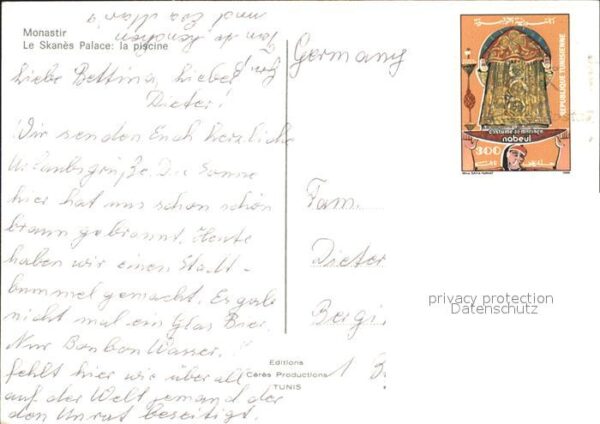 Monastir
Le Skanès Palace: la piscine
Liebe Bettina, lieber
Dieter!
Wir senden Euch herzliche
Urlaubsgrüße. Die Sonne
hier hat uns schon schön
braun gebrannt. Heute
haben wir einen Stadt-
bummel gemacht. Es gab
nicht mal ein Glas Bier.
Nur Bonbon Wasser.
fehlt hier wie überall
auf der Welt jemand der
den Unrat beseitigt.
und Eva Maria
Germany
Fam.
Dieter
Bergi
REPUBLIQUE TUNISIENNE
costume de mariage
nabeul
300
privacy protection
Datenschutz
Editions
Cérès Productions
TUNIS